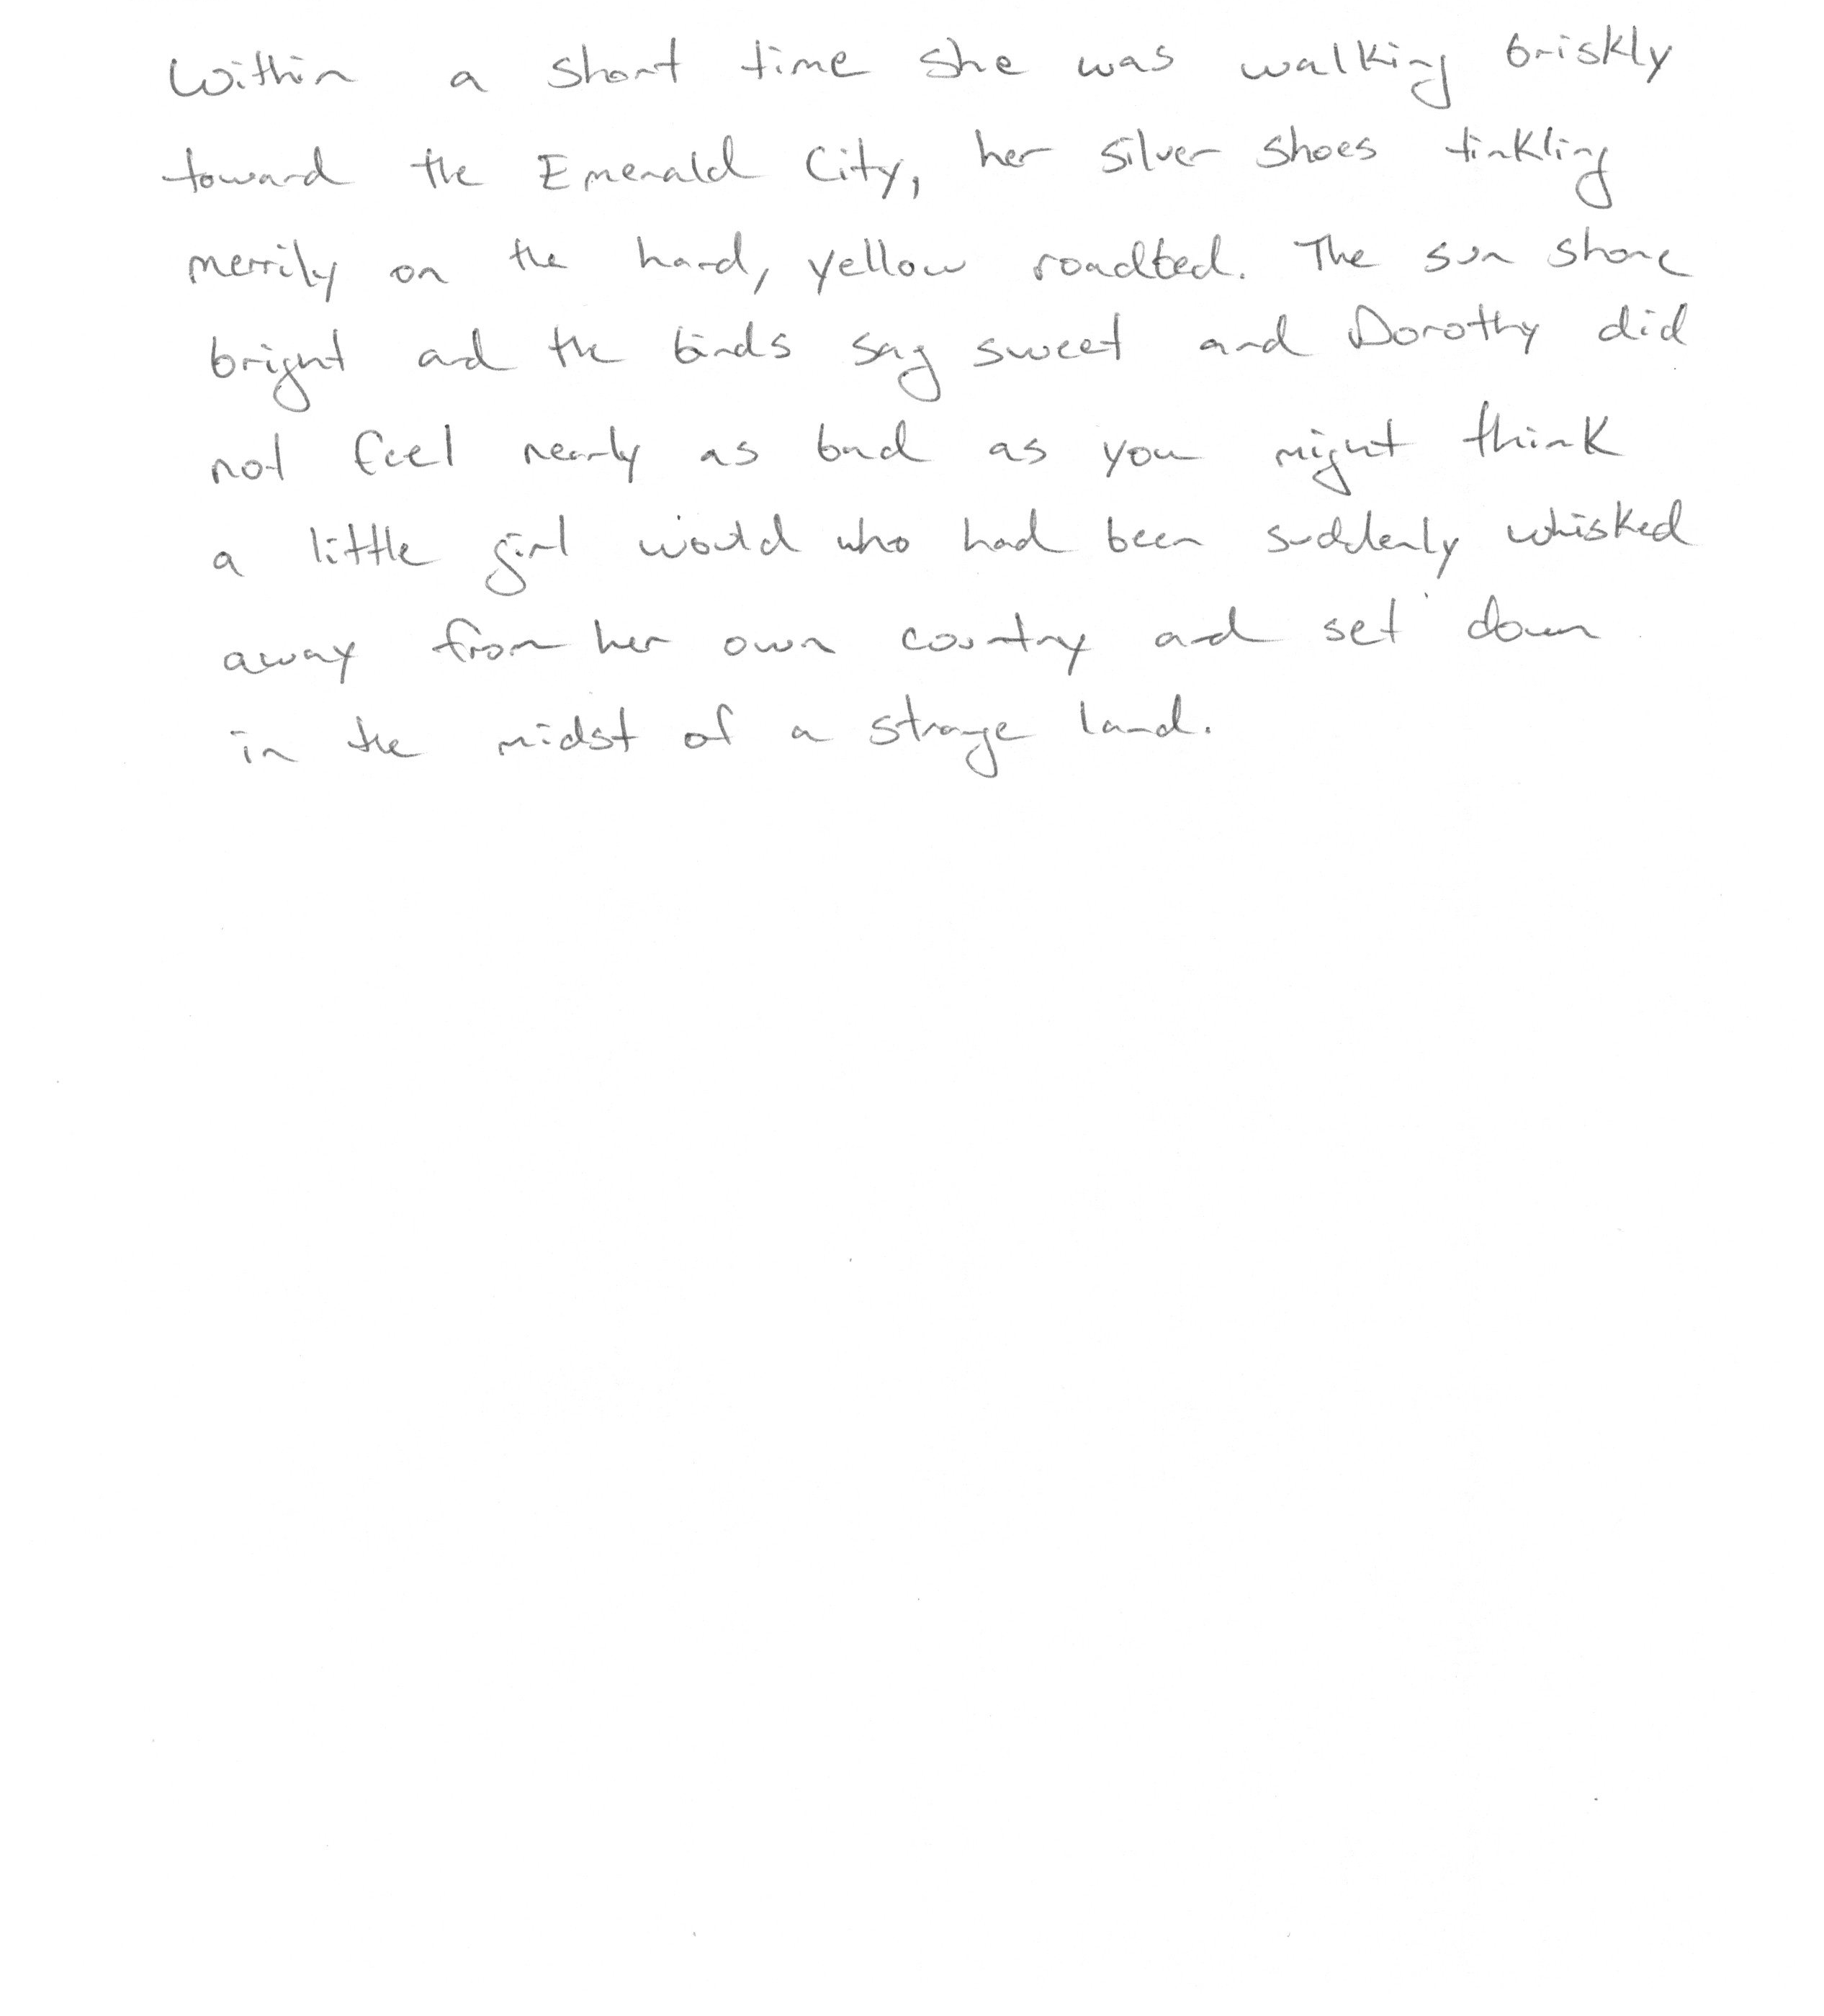 Within a short time she was walking briskly
toward the Emerald City, her silver shoes tinkling
merrily on the hard, yellow roadbed. The sun shone
bright and the birds sang sweet and Dorothy did
not feel nearly as bad as you might think
a little girl would who had been suddenly whisked
away from her own country and set down
in the midst of a strange land.